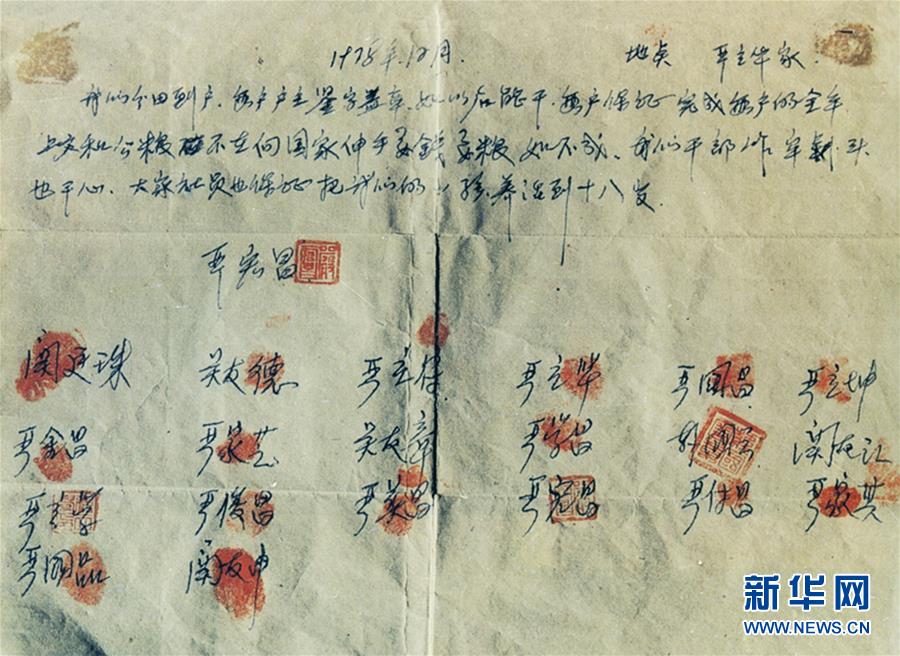 1978年12月. 地点 严立华家.
我们分田到户.每户户主鉴字盖章.如以后能干.每户保证完成每户的全年
上交和公粮 不在向国家伸手要钱要粮 如不成.我们干部作牢刹头
也干心.大家社员也保证把我们的小孩养活到十八岁.
严宏昌
関廷珠 关友德 严立符 严立华 严国昌 严立坤
严金昌 严家芝 关友章 严学昌 韩国云 関友江
严立学 严俊昌 严美昌 严宏昌 严付昌 严家其
严国品 関友申
新华网
WWW.NEWS.CN